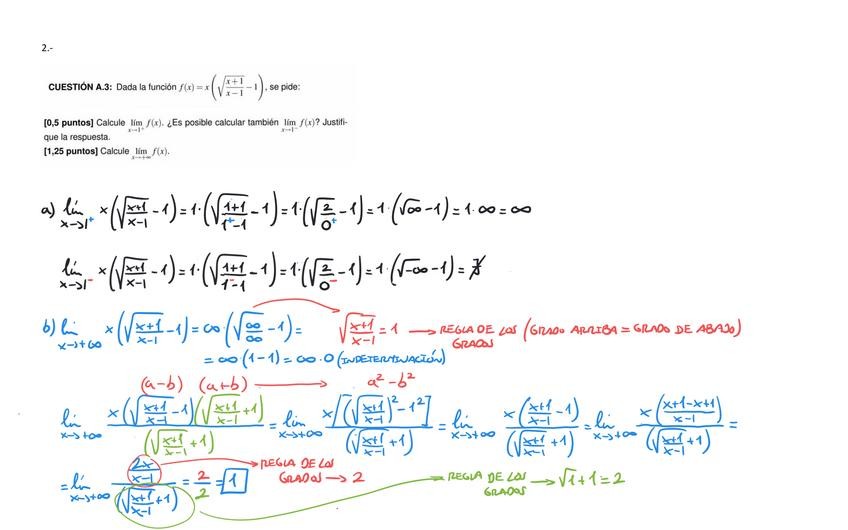 2.-
CUESTIÓN A.3: Dada la función f(x) = x(√((x+1)/(x−1)) − 1), se pide:
[0,5 puntos] Calcule lím x→1⁺ f(x). ¿Es posible calcular también lím x→1⁻ f(x)? Justifi-
que la respuesta.
[1,25 puntos] Calcule lím x→+∞ f(x).
a) lím x→1⁺ x(√((x+1)/(x−1)) −1) = 1·(√((1+1)/(1⁺−1)) −1) = 1·(√(2/0⁺) −1) = 1·(√∞ −1) = 1·∞ = ∞
lím x→1⁻ x(√((x+1)/(x−1)) −1) = 1·(√((1+1)/(1⁻−1)) −1) = 1·(√(2/0⁻) −1) = 1·(√−∞ −1) = ∄
b) lím x→+∞ x(√((x+1)/(x−1)) −1) = ∞·(√(∞/∞) −1) = √((x+1)/(x−1)) = 1 → REGLA DE LOS GRADOS (GRADO ARRIBA = GRADO DE ABAJO)
= ∞(1−1) = ∞·0 (INDETERMINACIÓN)
(a−b) (a+b) → a²−b²
lím x→+∞ x(√((x+1)/(x−1)) −1)(√((x+1)/(x−1)) +1) / (√((x+1)/(x−1)) +1) = lím x→+∞ x[(√((x+1)/(x−1)))² −1²] / (√((x+1)/(x−1)) +1) = lím x→+∞ x((x+1)/(x−1) −1) / (√((x+1)/(x−1)) +1) = lím x→+∞ x((x+1−x+1)/(x−1)) / (√((x+1)/(x−1)) +1) =
= lím x→+∞ (2x/(x−1)) / (√((x+1)/(x−1)) +1) = 2/2 = 1
REGLA DE LOS GRADOS → 2
REGLA DE LOS GRADOS → √1+1=2